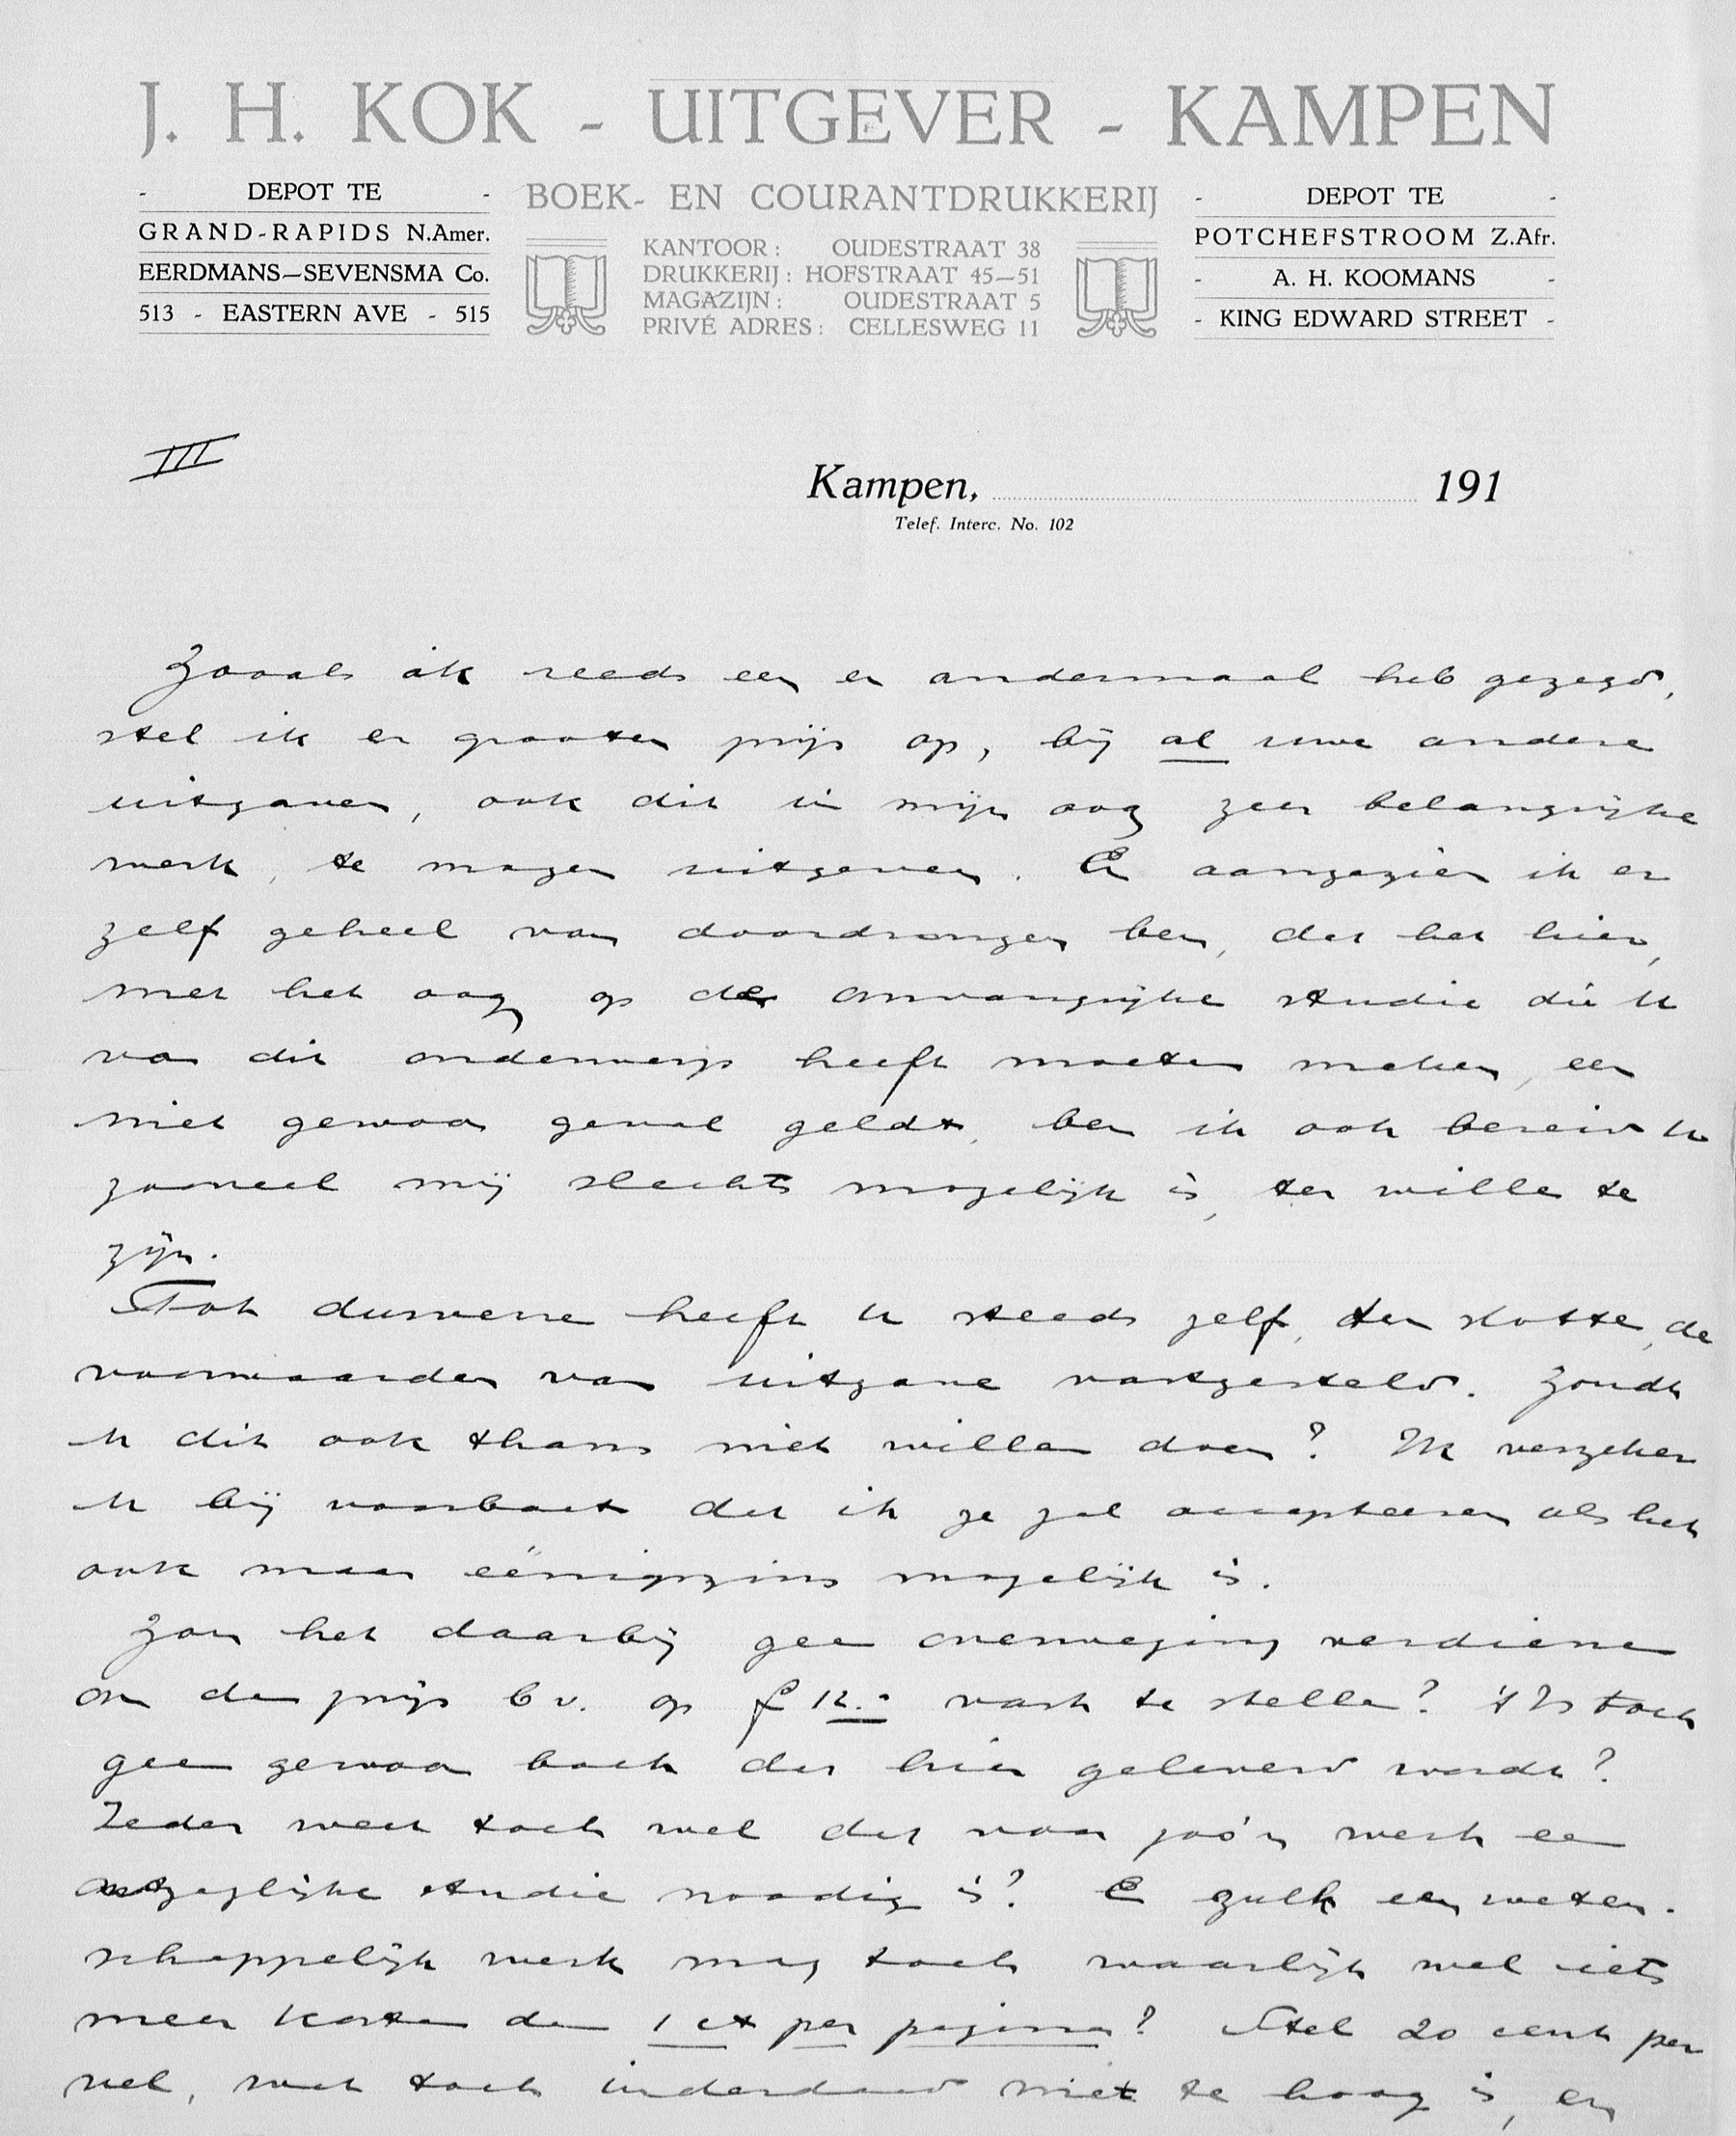 J. H. KOK - UITGEVER - KAMPEN
- DEPOT TE -
GRAND-RAPIDS N.Amer.
EERDMANS—SEVENSMA Co.
513 - EASTERN AVE - 515
BOEK- EN COURANTDRUKKERIJ
KANTOOR: OUDESTRAAT 38
DRUKKERIJ: HOFSTRAAT 45—51
MAGAZIJN: OUDESTRAAT 5
PRIVÉ ADRES: CELLESWEG 11
- DEPOT TE -
POTCHEFSTROOM Z.Afr.
- A. H. KOOMANS -
- KING EDWARD STREET -
III
Kampen, 191
Telef. Interc. No. 102
Zooals ik reeds een en andermaal heb gezegd,
stel ik er grooten prijs op, bij al uwe andere
uitgaven, ook dit in mijn oog zeer belangrijke
werk, te mogen uitgeven. En aangezien ik er
zelf geheel van doordrongen ben, dat het hier,
met het oog op de omvangrijke studie die U
van dit onderwerp heeft moeten maken, een
niet gewoon geval geldt, ben ik ook bereid U
zooveel mij slechts mogelijk is, ter wille te
zijn.
Tot dusverre heeft U steeds zelf, ten slotte, de
voorwaarden van uitgave vastgesteld. Zoudt
U dit ook thans niet willen doen? Ik verzeker
U bij voorbaat dat ik ze zal accepteeren als het
ook maar eénigszins mogelijk is.
Zou het daarbij geen overweging verdienen
om den prijs b.v. op f 12.- vast te stellen? 't Is toch
geen gewoon boek dat hier geleverd wordt?
Ieder weet toch wel dat voor zoo'n werk een
ontzaglijke studie noodig is? En zulk een weten-
schappelijk werk mag toch waarlijk wel iets
meer kosten dan 1 ct per pagina? Stel 20 cent per
vel, wat toch inderdaad niet te hoog is, en